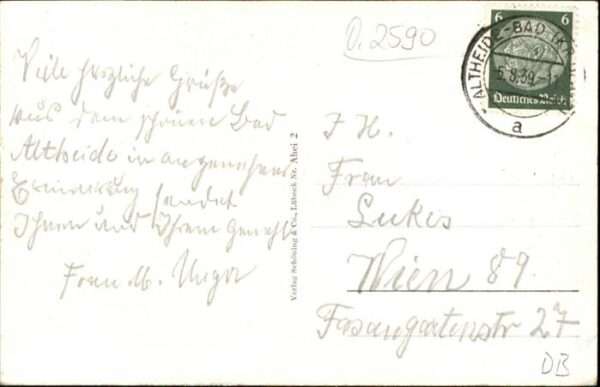 O. 2590
ALTHEIDE-BAD
5.8.39
a
6 6
Deutsches Reich
Viele herzliche Grüße
aus dem schönen Bad
Altheide in angenehmer
Erinnerung sendet
Ihnen und Ihrem Gemahl
Frau M. Unger
Verlag Schöning & Co., Lübeck Nr. Ahei 2
I. H.
Frau
Lukes
Wien 89.
Fasangartenstr 27
DB